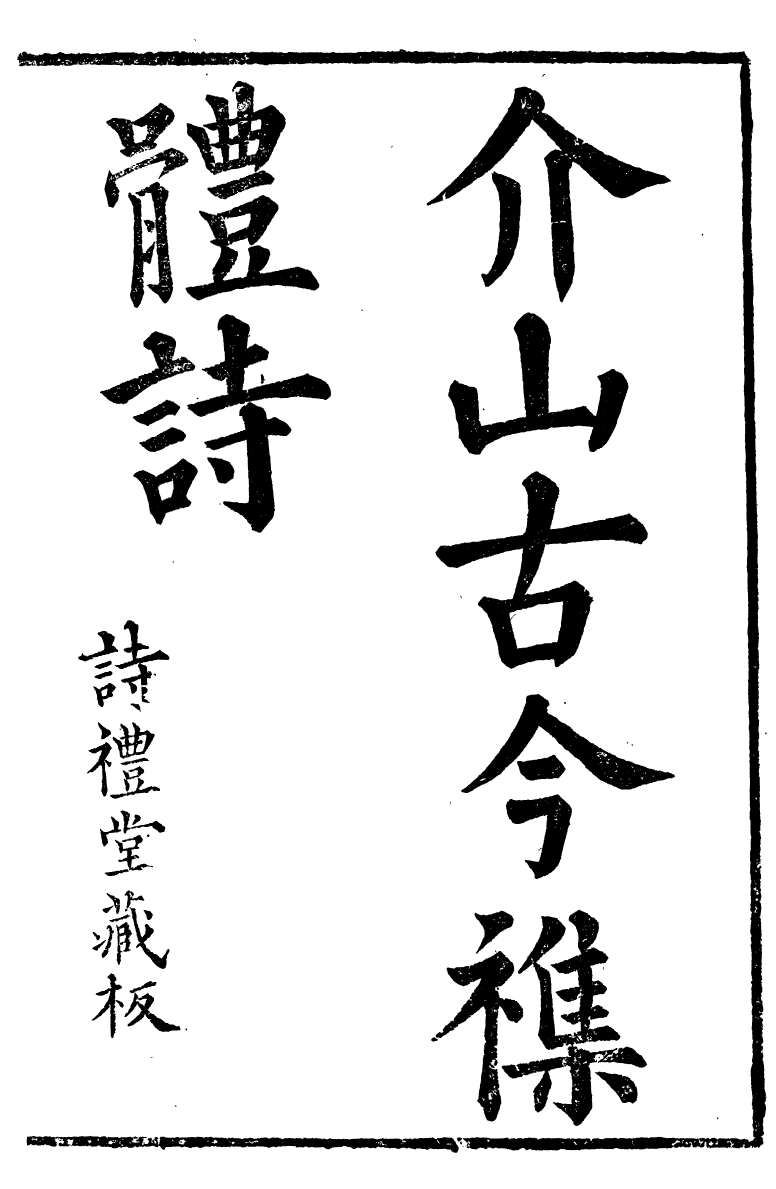 介山古今襍
體詩
詩禮堂藏板